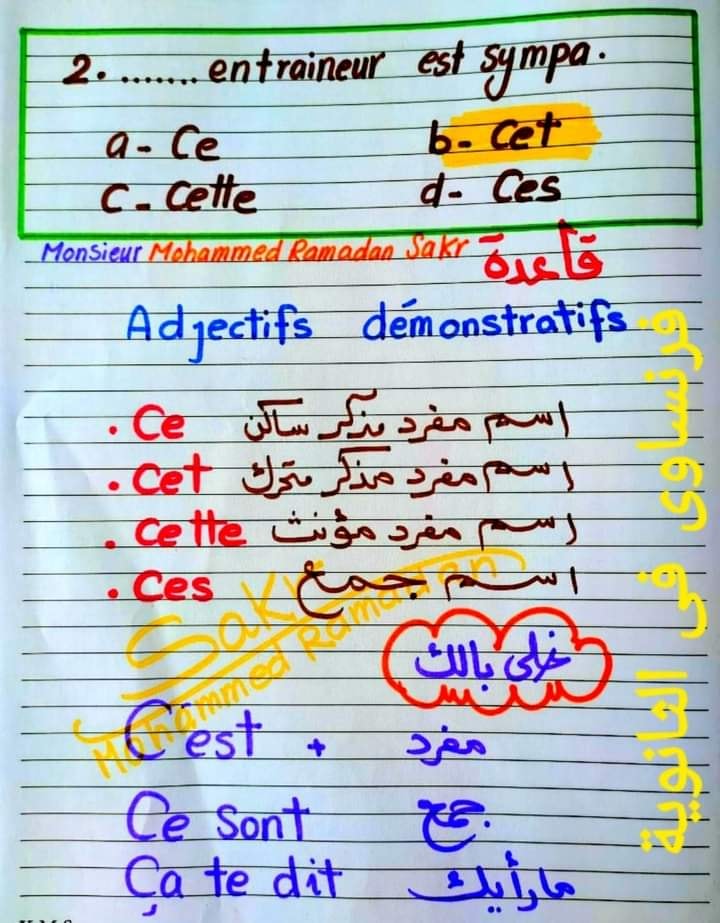 2. ....... entraineur est sympa.
a - Ce b - Cet
C - Cette d - Ces
Monsieur Mohammed Ramadan Sakr
قاعدة
Adjectifs démonstratifs
. Ce اسم مفرد مذكر ساكن
. Cet اسم مفرد مذكر متحرك
. Cette اسم مفرد مؤنث
. Ces اسم جمع
خلى بالك
C'est + مفرد
Ce sont جمع
Ça te dit مارأيك
Sakr
Mohammed Ramadan
فرنساوى فى الثانوية